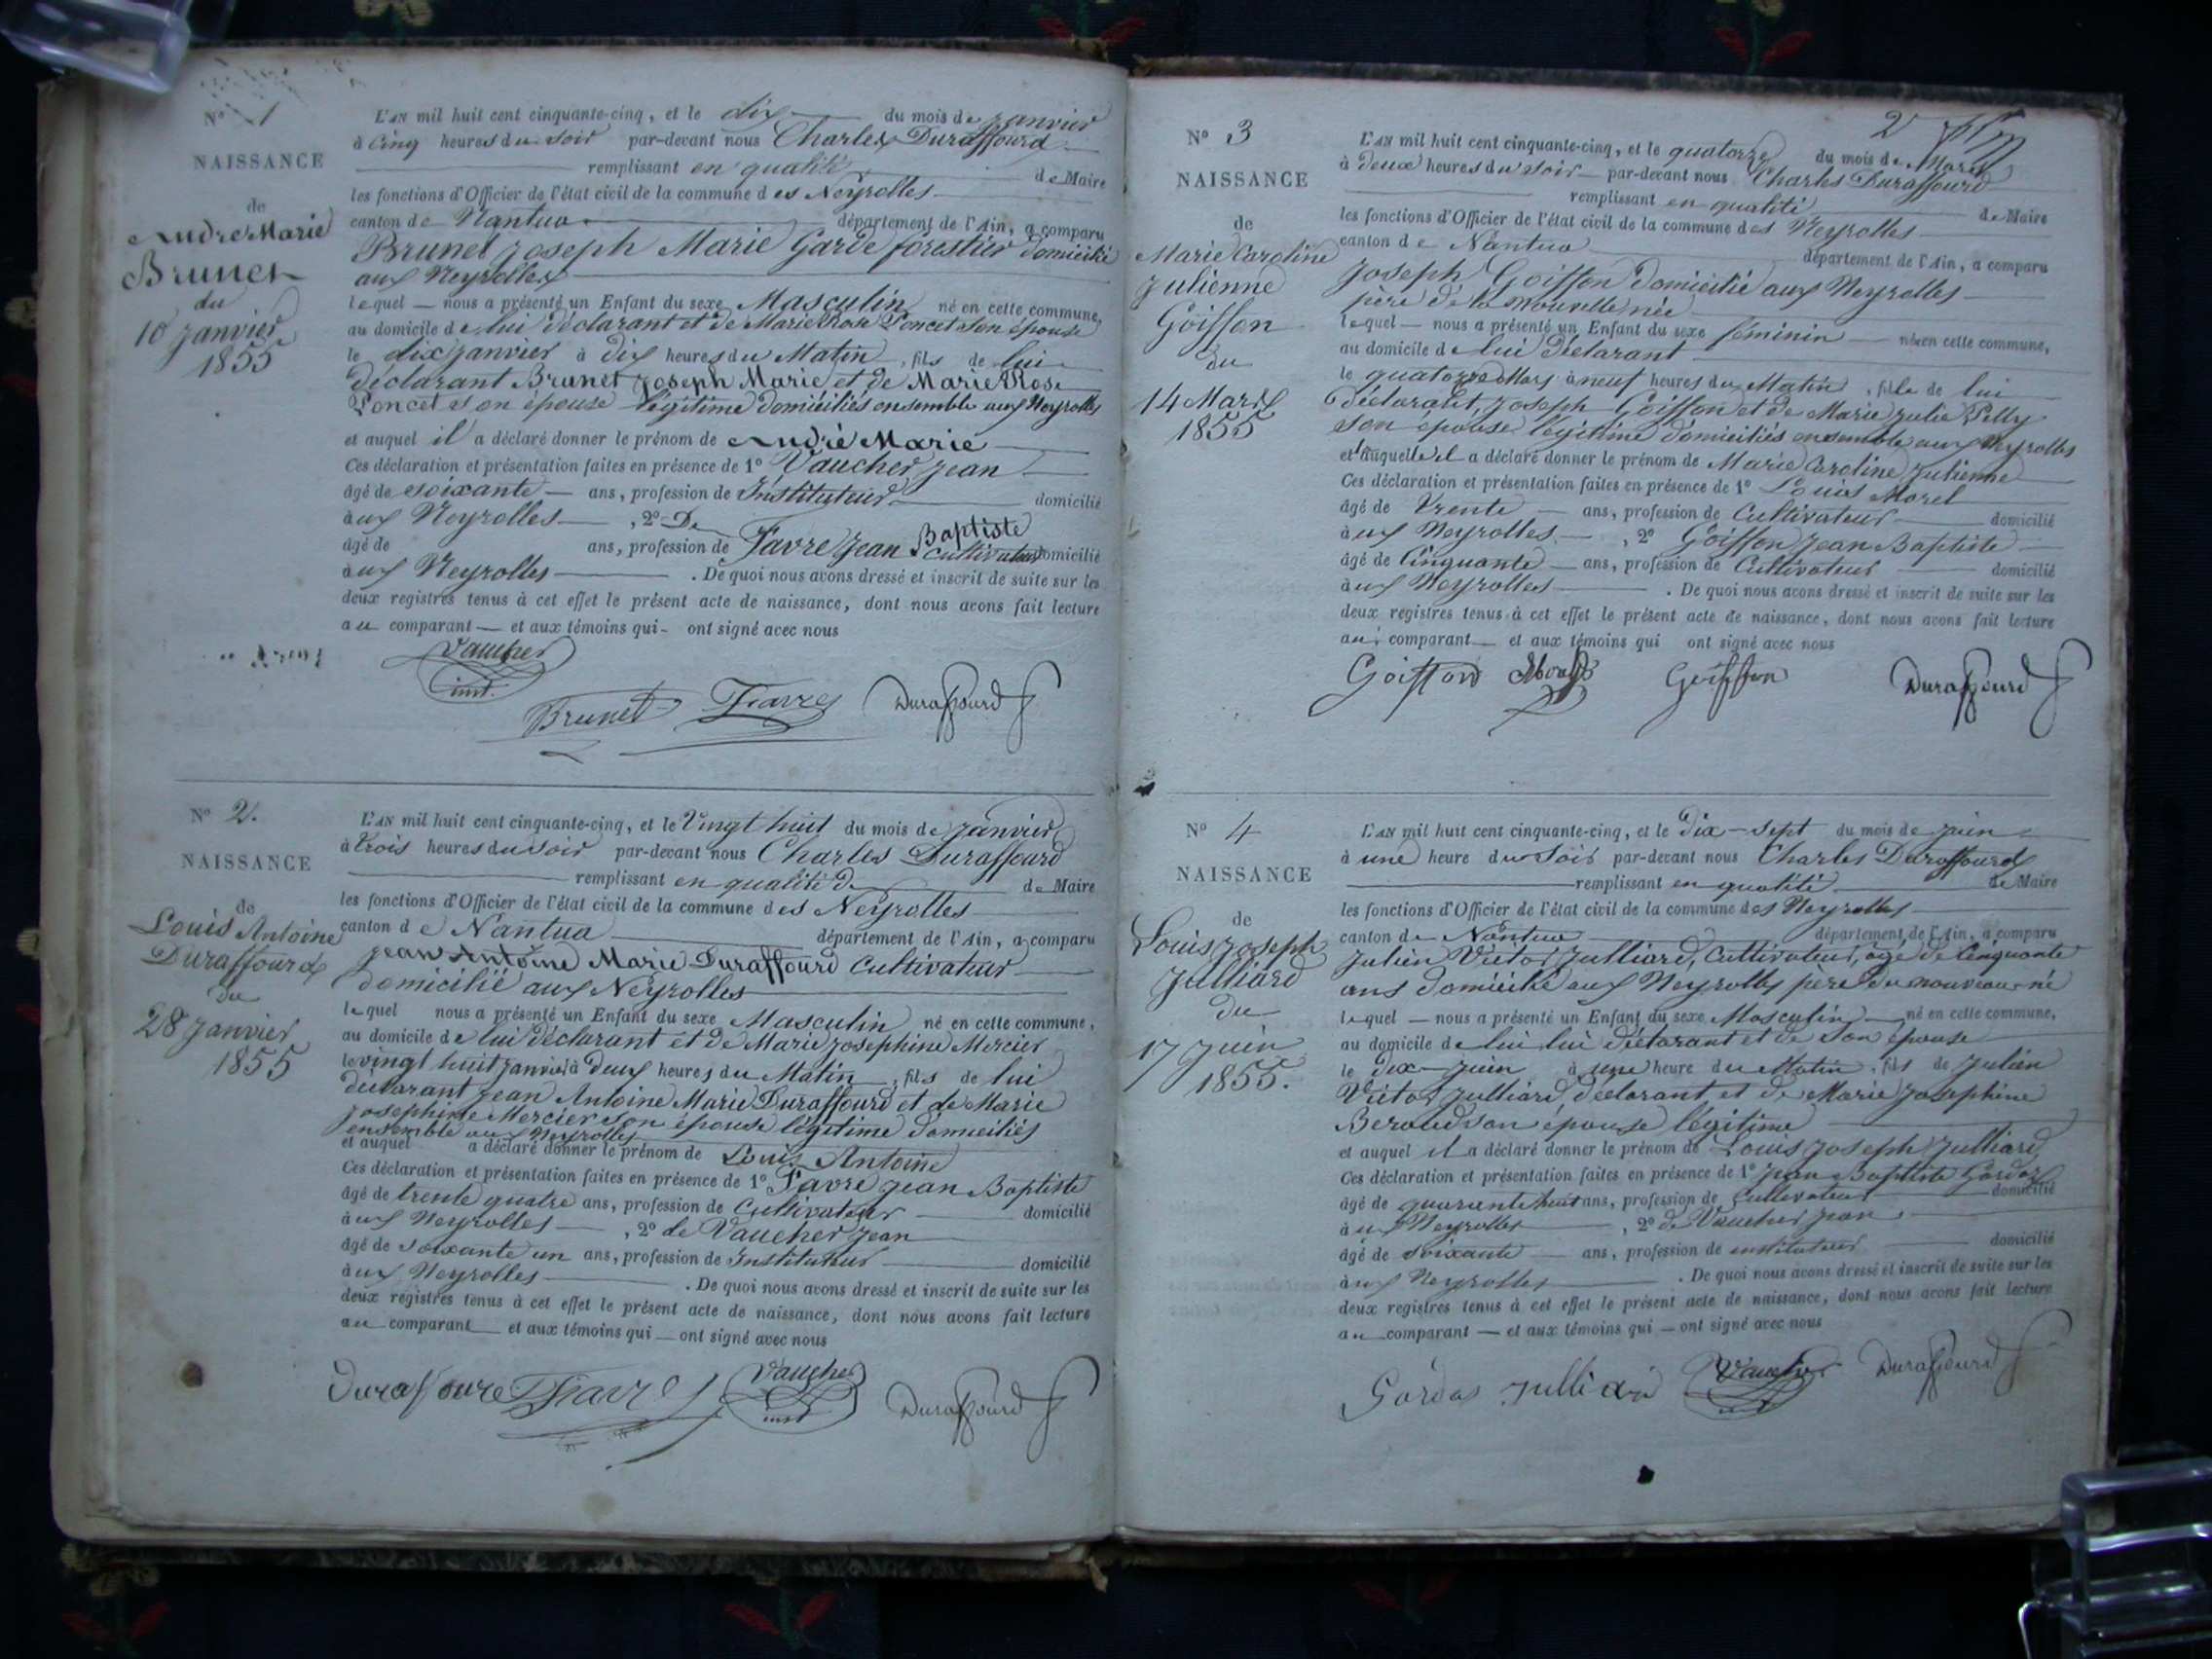 Nº 1
NAISSANCE
de
André Marie
Brunet
du
10 janvier
1855
L'AN mil huit cent cinquante-cinq, et le dix du mois de janvier
à cinq heures du soir par-devant nous Charles Duraffourd
remplissant en qualité de Maire
les fonctions d'Officier de l'état civil de la commune des Neyrolles
canton de Nantua département de l'Ain, a comparu
Brunet joseph Marie Garde forestier domicilié
aux Neyrolles
lequel nous a présenté un Enfant du sexe Masculin né en cette commune,
au domicile de lui déclarant et de Marie Rose Poncet son épouse
le dix janvier à dix heures du Matin, fils de lui
déclarant Brunet joseph Marie et de Marie Rose
Poncet son épouse légitime domiciliés ensemble aux Neyrolles
et auquel il a déclaré donner le prénom de André Marie
Ces déclaration et présentation faites en présence de 1º Vaucher jean
âgé de soixante ans, profession de Instituteur domicilié
aux Neyrolles, 2º De
âgé de ans, profession de Favre jean Baptiste cultivateur domicilié
aux Neyrolles. De quoi nous avons dressé et inscrit de suite sur les
deux registres tenus à cet effet le présent acte de naissance, dont nous avons fait lecture
au comparant et aux témoins qui ont signé avec nous
Vaucher
inst.
Brunet Favre Duraffourd
Nº 2.
NAISSANCE
de
Louis Antoine
Duraffourd
du
28 janvier
1855
L'AN mil huit cent cinquante-cinq, et le Vingt huit du mois de janvier
à trois heures du soir par-devant nous Charles Duraffourd
remplissant en qualité de de Maire
les fonctions d'Officier de l'état civil de la commune des Neyrolles
canton de Nantua département de l'Ain, a comparu
jean Antoine Marie Duraffourd Cultivateur
domicilié aux Neyrolles
lequel nous a présenté un Enfant du sexe Masculin né en cette commune,
au domicile de lui déclarant et de Marie josephine Mercier
le vingt huit janvier à deux heures du Matin, fils de lui
déclarant jean Antoine Marie Duraffourd et de Marie
josephine Mercier son épouse légitime domiciliés
ensemble aux Neyrolles
et auquel a déclaré donner le prénom de Louis Antoine
Ces déclaration et présentation faites en présence de 1º Favre jean Baptiste
âgé de trente quatre ans, profession de Cultivateur domicilié
aux Neyrolles, 2º de Vaucher jean
âgé de soixante un ans, profession de Instituteur domicilié
aux Neyrolles. De quoi nous avons dressé et inscrit de suite sur les
deux registres tenus à cet effet le présent acte de naissance, dont nous avons fait lecture
au comparant et aux témoins qui ont signé avec nous
Duraffourd Favre Vaucher
inst
Duraffourd
2
Nº 3
NAISSANCE
de
Marie Caroline
julienne
Goiffon
du
14 Mars
1855
L'AN mil huit cent cinquante-cinq, et le quatorze du mois de Mars
à deux heures du soir par-devant nous Charles Duraffourd
remplissant en qualité de Maire
les fonctions d'Officier de l'état civil de la commune des Neyrolles
canton de Nantua département de l'Ain, a comparu
joseph Goiffon domicilié aux Neyrolles
père de la nouvelle née
lequel nous a présenté un Enfant du sexe féminin née en cette commune,
au domicile de lui déclarant
le quatorze Mars à neuf heures du Matin, fille de lui
déclarant, joseph Goiffon et de Marie julie Pelly
son épouse légitime domiciliés ensemble aux Neyrolles
et à laquelle il a déclaré donner le prénom de Marie Caroline julienne
Ces déclaration et présentation faites en présence de 1º Louis Morel
âgé de trente ans, profession de Cultivateur domicilié
aux Neyrolles, 2º Goiffon jean Baptiste
âgé de Cinquante ans, profession de Cultivateur domicilié
aux Neyrolles. De quoi nous avons dressé et inscrit de suite sur les
deux registres tenus à cet effet le présent acte de naissance, dont nous avons fait lecture
au comparant et aux témoins qui ont signé avec nous
Goiffon Goiffon Duraffourd
Nº 4
NAISSANCE
de
Louis joseph
julliard
du
17 juin
1855.
L'AN mil huit cent cinquante-cinq, et le Dix-sept du mois de juin
à une heure du soir par-devant nous Charles Duraffourd
remplissant en qualité de Maire
les fonctions d'Officier de l'état civil de la commune des Neyrolles
canton de Nantua département de l'Ain, a comparu
julien Victor julliard, Cultivateur, agé de Cinquante
ans domicilié aux Neyrolles père du nouveau né
lequel nous a présenté un Enfant du sexe Masculin né en cette commune,
au domicile de lui lui déclarant et de son épouse
le dix juin à une heure du Matin, fils de julien
Victor julliard, déclarant et de Marie josephine
Beroud son épouse légitime
et auquel il a déclaré donner le prénom de Louis joseph julliard
Ces déclaration et présentation faites en présence de 1º jean Baptiste Gordas
âgé de quarante huit ans, profession de Cultivateur domicilié
aux Neyrolles, 2º de Vaucher jean
âgé de Soixante ans, profession de instituteur domicilié
aux Neyrolles. De quoi nous avons dressé et inscrit de suite sur les
deux registres tenus à cet effet le présent acte de naissance, dont nous avons fait lecture
au comparant et aux témoins qui ont signé avec nous
Gordas julliard Vaucher Duraffourd